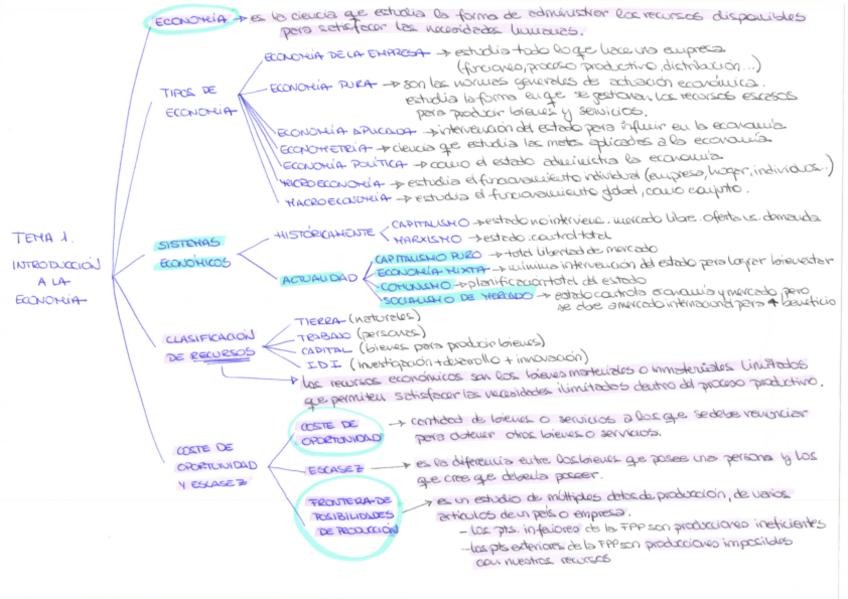 ECONOMÍA → es la ciencia que estudia la forma de administrar los recursos disponibles
para satisfacer las necesidades humanas.
TIPOS DE
ECONOMÍA
ECONOMÍA DE LA EMPRESA → estudia todo lo que hace una empresa
(funciones, proceso productivo, distribución...)
ECONOMÍA PURA → son las normas generales de actuación económica.
estudia la forma en que se gestionan los recursos escasos
para producir bienes y servicios.
ECONOMÍA APLICADA → intervención del estado para influir en la economía
ECONOMETRÍA → ciencia que estudia las mates aplicadas a la economía
ECONOMÍA POLÍTICA → como el estado administra la economía
MICROECONOMÍA → estudia el funcionamiento individual (empresa, hogar, individuos..)
MACROECONOMÍA → estudia el funcionamiento global, como conjunto.
TEMA 1.
INTRODUCCIÓN
A LA
ECONOMÍA
SISTEMAS
ECONÓMICOS
HISTÓRICAMENTE
CAPITALISMO → estado no interviene. mercado libre. oferta vs. demanda
MARXISMO → estado. control total
ACTUALIDAD
CAPITALISMO PURO → total libertad de mercado
ECONOMÍA MIXTA → mínima intervención del estado para lograr bienestar
COMUNISMO → planificación total del estado
SOCIALISMO DE MERCADO → estado controla economía y mercado, pero
se abre a mercado internacional para + beneficio
CLASIFICACIÓN
DE RECURSOS
TIERRA (naturales)
TRABAJO (personas)
CAPITAL (bienes para producir bienes)
I.D.I (investigación + desarrollo + innovación)
los recursos económicos son los bienes materiales o inmateriales limitados
que permiten satisfacer las necesidades ilimitadas dentro del proceso productivo.
COSTE DE
OPORTUNIDAD
Y ESCASEZ
COSTE DE
OPORTUNIDAD
→ cantidad de bienes o servicios a los que se debe renunciar
para obtener otros bienes o servicios.
ESCASEZ → es la diferencia entre los bienes que posee una persona y los
que cree que debería poseer.
FRONTERA DE
POSIBILIDADES
DE PRODUCCIÓN
→ es un estudio de múltiples datos de producción, de varios
artículos de un país o empresa.
- Los pts. inferiores de la FPP son producciones ineficientes
- los pts exteriores de la FPP son producciones imposibles
con nuestros recursos